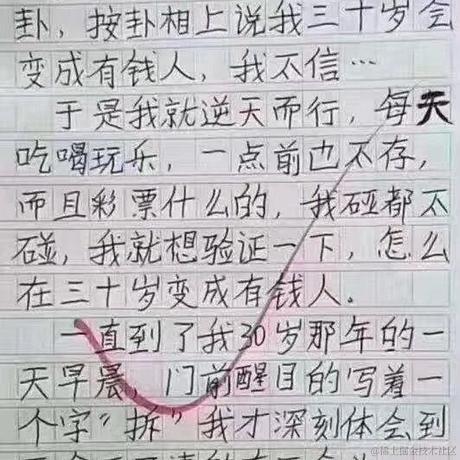 卦，按卦相上说我三十岁会
变成有钱人，我不信…
于是我就逆天而行，每天
吃喝玩乐，一点前也不存，
而且彩票什么的，我碰都不
碰，我就想验证一下，怎么
在三十岁变成有钱人。
一直到了我30岁那年的一
天早晨，门前醒目的写着一
个字“拆”我才深刻体会到
@稀土掘金技术社区